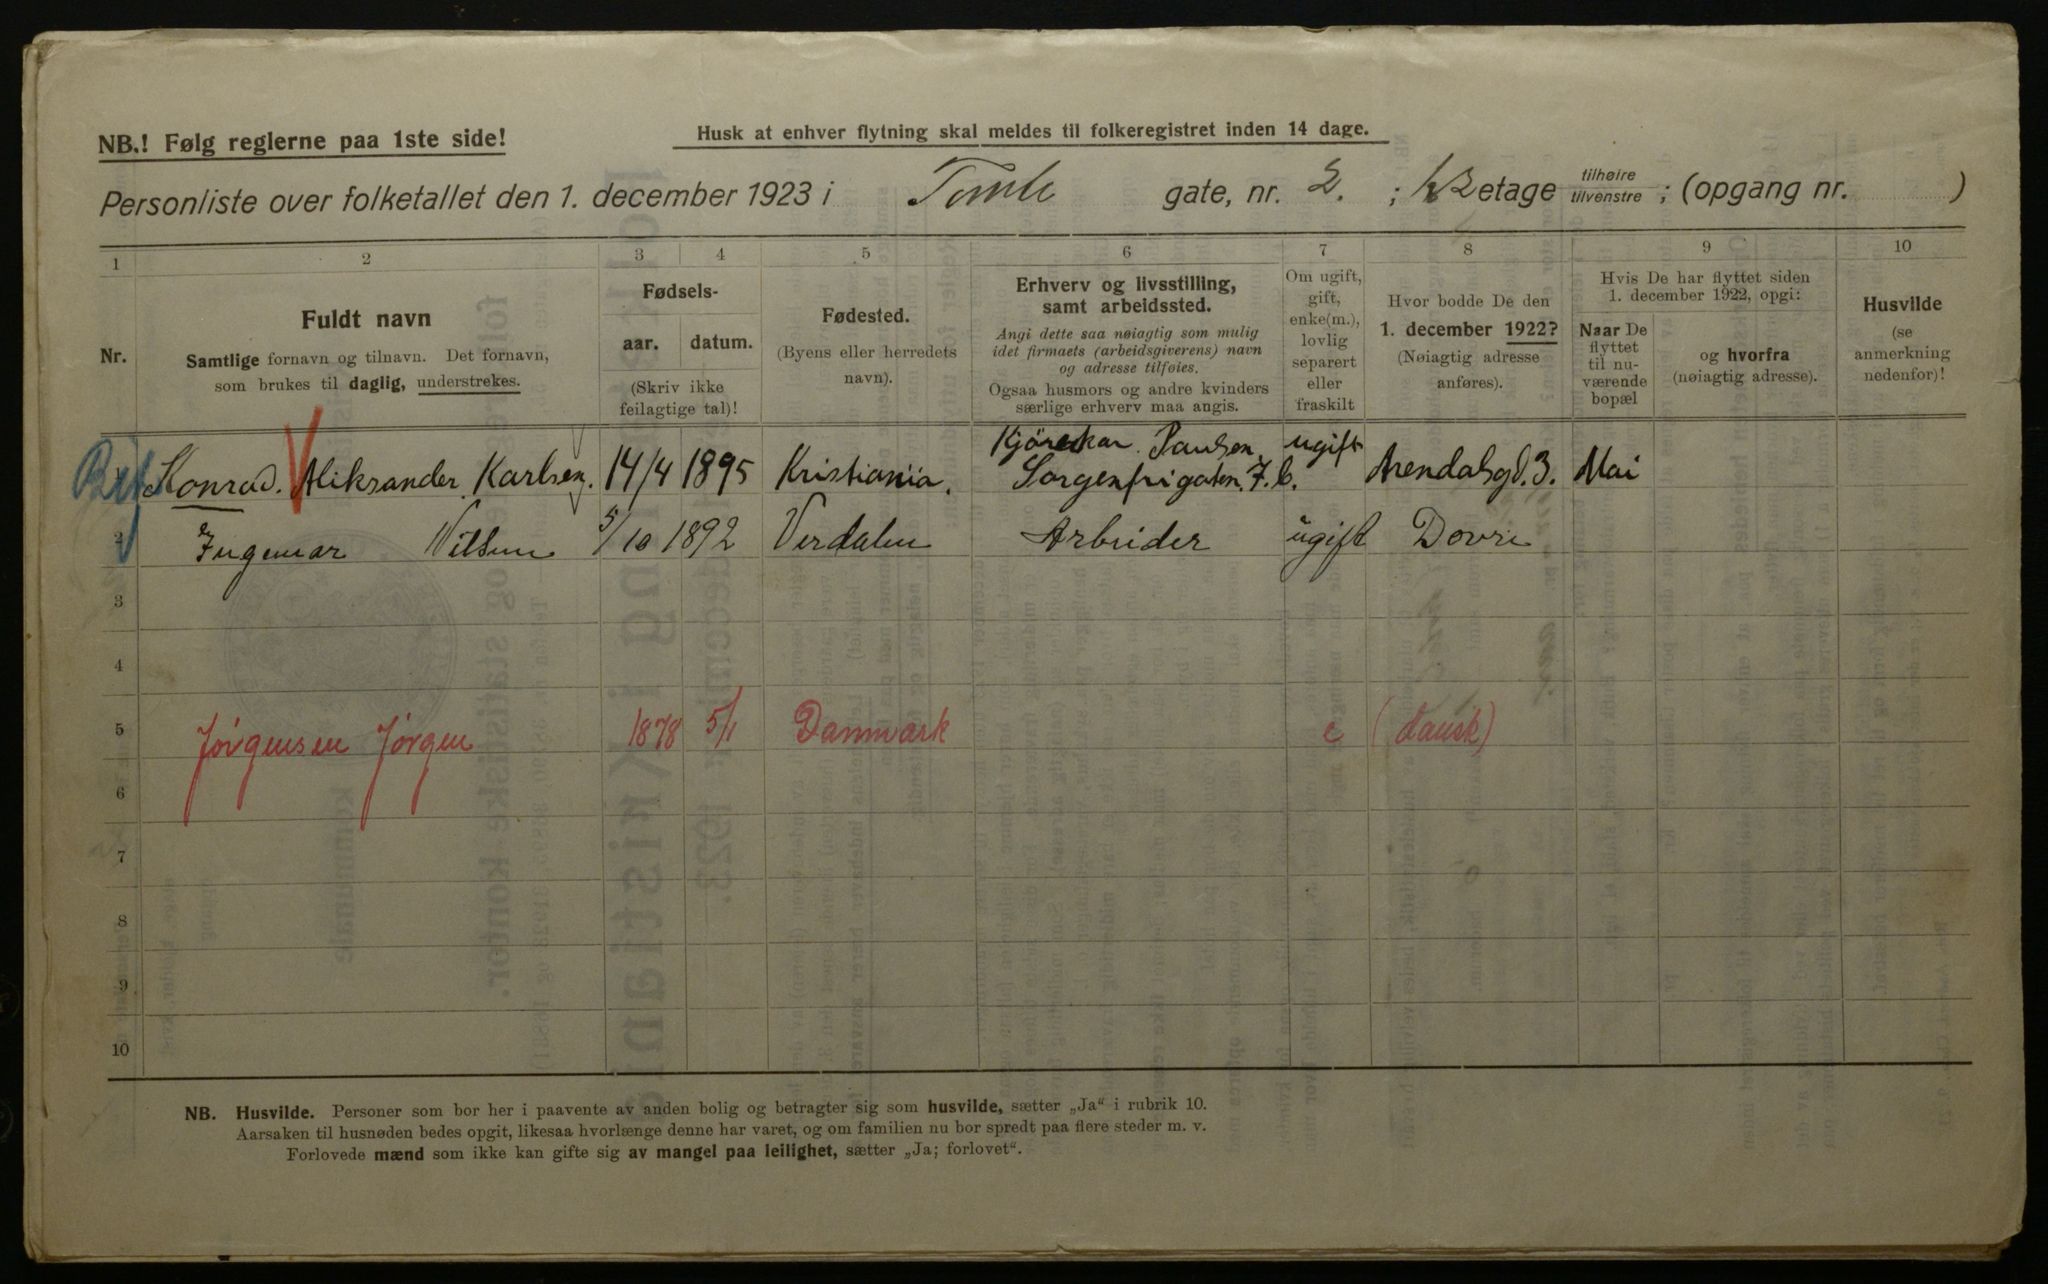 NB.! Følg reglerne paa 1ste side!
Husk at enhver flytning skal meldes til folkeregistret inden 14 dage.
Personliste over folketallet den 1. december 1923 i Tomte gate, nr. 2. ; etage tilhøire tilvenstre ; (opgang nr. )
1 2 3 4 5 6 7 8 9 10
Nr.
Fuldt navn
Samtlige fornavn og tilnavn. Det fornavn,
som brukes til daglig, understrekes.
Fødsels-
aar. datum.
(Skriv ikke
feilagtige tal)!
Fødested.
(Byens eller herredets
navn).
Erhverv og livsstilling,
samt arbeidssted.
Angi dette saa nøiagtig som mulig
idet firmaets (arbeidsgiverens) navn
og adresse tilføies.
Ogsaa husmors og andre kvinders
særlige erhverv maa angis.
Om ugift,
gift,
enke(m.),
lovlig
separert
eller
fraskilt
Hvor bodde De den
1. december 1922?
(Nøiagtig adresse
anføres).
Hvis De har flyttet siden
1. december 1922, opgi:
Naar De
flyttet
til nu-
værende
bopæl
og hvorfra
(nøiagtig adresse).
Husvilde
(se
anmerkning
nedenfor)!
Konrad. Aliksander. Karlsen. 14/4 1895 Kristiania. Kjörekar Paulsen. Sorgenfrigaten. 7. b. ugift Arendalsgd. 3. Mai
2 Ingemar Nilsen 5/10 1892 Verdalen Arbeider ugift Dovre
3
4
5 Jørgensen Jørgen 1878 5/1 Danmark e (dansk)
6
7
8
9
10
NB. Husvilde. Personer som bor her i paavente av anden bolig og betragter sig som husvilde, sætter „Ja“ i rubrik 10.
Aarsaken til husnøden bedes opgit, likesaa hvorlænge denne har varet, og om familien nu bor spredt paa flere steder m. v.
Forlovede mænd som ikke kan gifte sig av mangel paa leilighet, sætter „Ja; forlovet“.